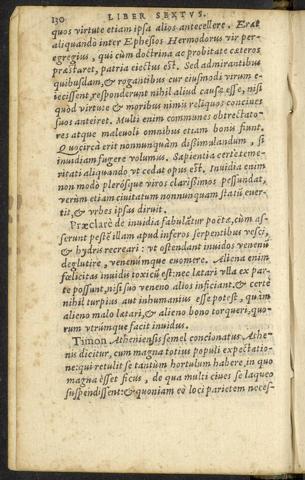 130 LIBER SEXTVS.
quos virtute etiam ipsa alios antecellere. Erat
aliquando inter Ephesios Hermodorus vir per-
egregius, qui cùm doctrina ac probitate cæteros
præstaret, patria eiectus est. Sed admirantibus
quibusdam, & rogantibus cur eiusmodi virum e-
iecissent, responderunt nihil aliud causæ esse, nisi
quòd virtute & moribus nimis reliquos conciues
suos anteiret. Multi enim communes obtrectato-
res atque maleuoli omnibus etiam bonu fiunt.
Quocircà erit nonnunquàm dissimulandum, si
inuidiam fugere volumus. Sapientia certè teme-
ritati aliquando vt cedat opus est. Inuidia enim
non modo plerósque viros clarissimos pessundat,
verùm etiam ciuitatum nonnunquam statū euer-
tit, & vrbes ipsas diruit.
Præclarè de inuidia fabulātur poëtæ, cùm as-
serunt pestē illam apud inferos serpentibus vesci,
& hydris recreari: vt ostendant inuidos venenū
deglutire, venenúmque euomere. Aliena enim
fœlicitas inuidis toxicū est: nec lætari vlla ex par-
te possunt, nisi suo veneno alios inficiant. & certè
nihil turpius aut inhumanius esse potest, quàm
alieno malo lætari, & alieno bono torqueri, quo-
rum vtrúmque facit inuidus.
Timon Atheniensis semel concionatus Athe-
nis dicitur, cum magna totius populi expectatio-
ne: qui retulit se tantùm hortulum habere, in quo
magna esset ficus, de qua multi ciues se laqueo
suspendissent: & quoniam eò loci parietem neces-